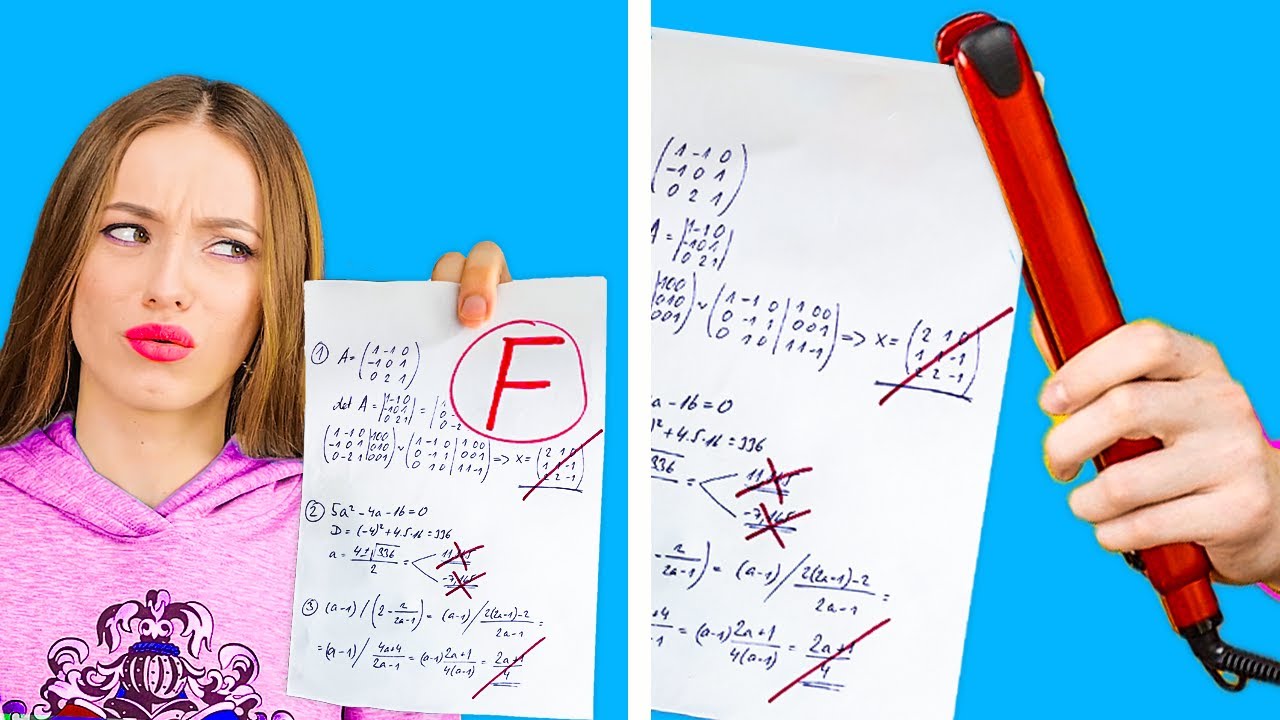 F
① A = (1 -1 0
-1 0 1
0 2 1)
det A = |1 -1 0
-1 0 1
0 2 1| = |1
0 -2
(1 -1 0 | 1 0 0
-1 0 1 | 0 1 0
0 -2 1 | 0 0 1) ~ (1 -1 0 | 1 0 0
0 -1 1 | 0 0 1
0 1 0 | 1 1 -1) => x = (2 1 0
1 1 -1
2 2 -1)
② 5a² - 4a - 16 = 0
D = (-4)² + 4.5.16 = 336
a = 4±√336 / 2 =
-7,165
③ (a-1) / (2 - 2/2a-1) = (a-1) / 2(2a-1)-2 / 2a-1 =
= (a-1) / 4a+4 / 2a-1 = (a-1) 2a+1 / 4(a-1) = 2a+1 / 4
(1 -1 0
-1 0 1
0 2 1)
A = |1 -1 0
-1 0 1
0 2 1|
|100
010
001) ~ (1 -1 0 | 1 00
0 -1 1 | 001
0 1 0 | 11-1) => x = (2 1 0
1 1 -1
2 2 -1)
a - 16 = 0
)² + 4.5.16 = 336
336 =
-7,165
- 2/2a-1) = (a-1) / 2(2a-1)-2 / 2a-1 =
+4 / a-1 = (a-1) 2a+1 / 4(a-1) = 2a+1 / 4